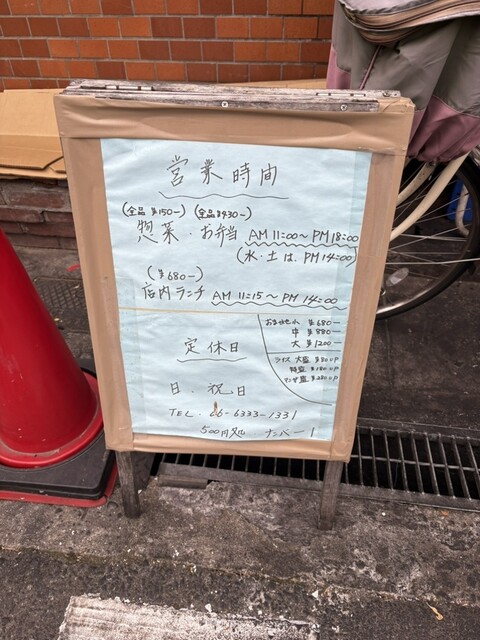 営業時間
(全品 ¥150-) (全品¥430-)
惣菜・お弁当 AM 11:00~PM18:00
(水・土は、PM 14:00)
(¥680-)
店内ランチ AM 11:15~PM 14:00
¥680-
中 ¥880-
大 ¥1200-
定休日
ライス 大盛 ¥80UP
特盛 ¥180UP
¥280UP
日．祝日
TEL. 06-6333-1331
500円処 ナンバー1